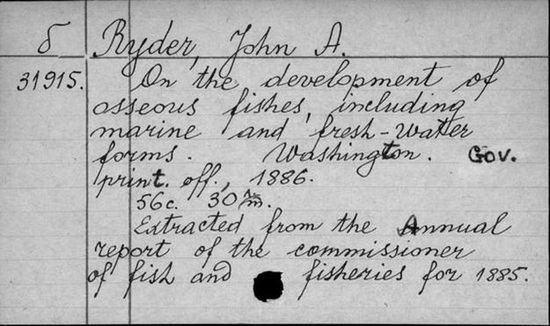 δ Ryder, John A.
31915. On the development of
osseous fishes, including
marine and fresh-water
forms. Washington. Gov.
print. off., 1886.
56c. 30 m.
Extracted from the Annual
report of the commissioner
of fish and fisheries for 1885.